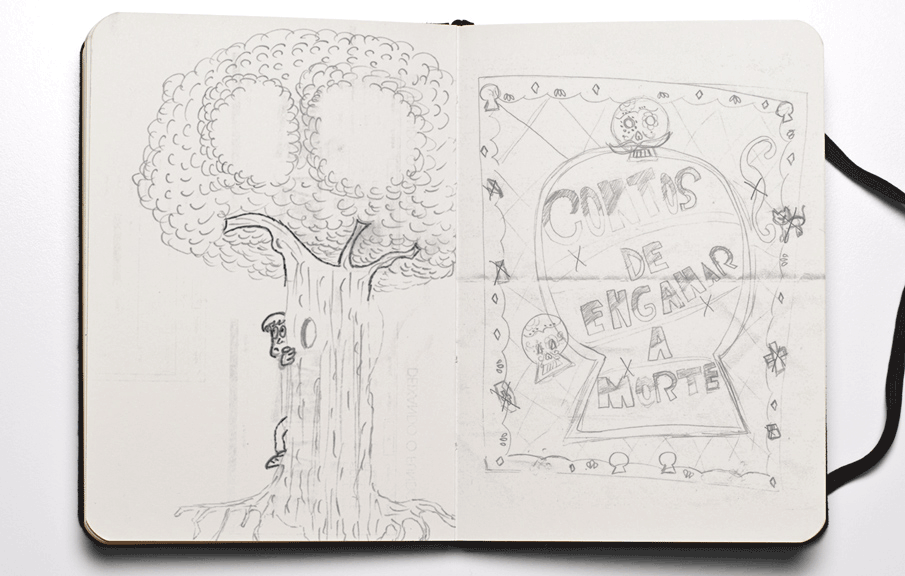 CONTOS
DE
ENGANAR
A
MORTE